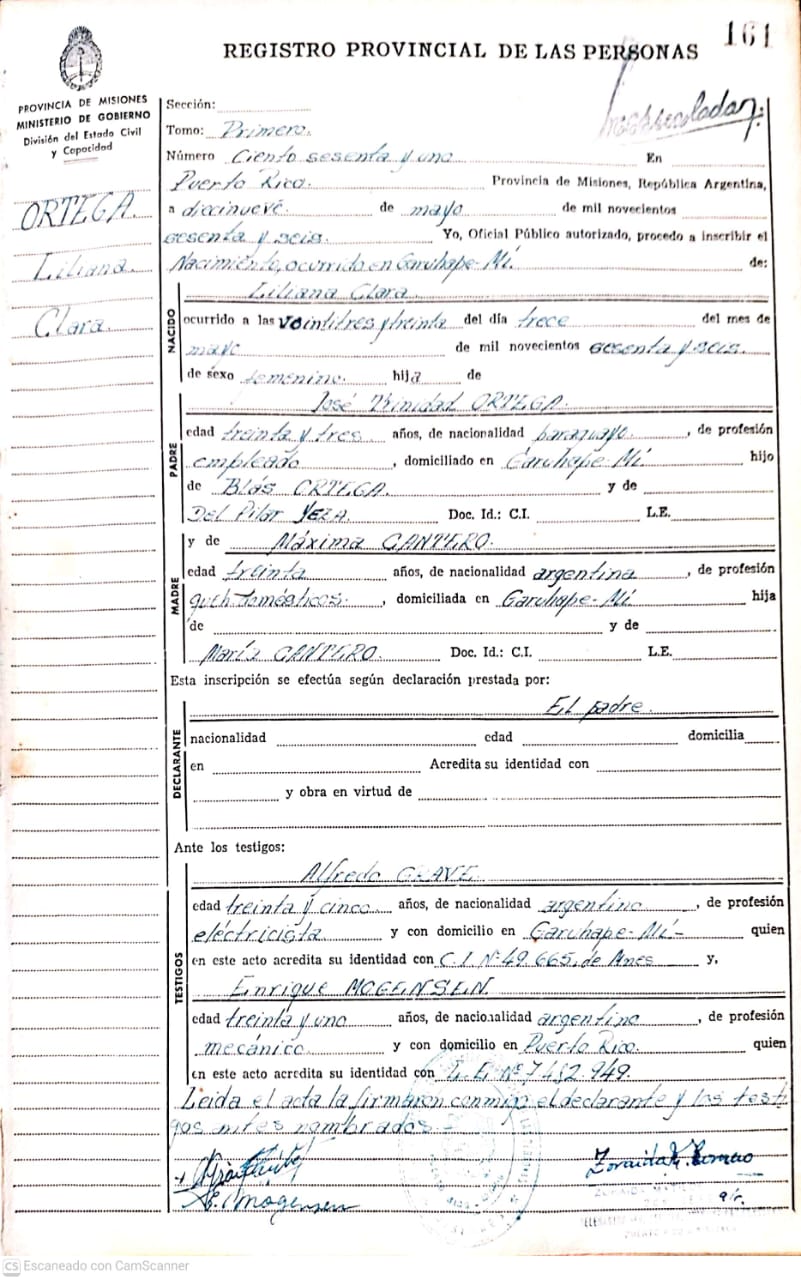 161
REGISTRO PROVINCIAL DE LAS PERSONAS
PROVINCIA DE MISIONES
MINISTERIO DE GOBIERNO
División del Estado Civil
y Capacidad
ORTEGA.
Liliana.
Clara.
Sección:
Tomo: Primero.
Número Ciento sesenta y uno En
Puerto Rico. Provincia de Misiones, República Argentina,
a diecinueve. de mayo de mil novecientos
sesenta y seis. Yo, Oficial Público autorizado, procedo a inscribir el
Nacimiento, ocurrido en Garuhape-Mí. de:
NACIDO
Liliana Clara.
ocurrido a las veintitres y treinta del día trece del mes de
mayo de mil novecientos sesenta y seis.
de sexo femenino. hija de
PADRE
José Trinidad ORTEGA.
edad treinta y tres años, de nacionalidad paraguayo. , de profesión
empleado , domiciliado en Garuhape-Mí hijo
de Blás ORTEGA. y de
Del Pilar Doc. Id.: C.I. L.E.
y de Máxima CANTERO.
MADRE
edad treinta años, de nacionalidad argentina , de profesión
queh. domésticos. , domiciliada en Garuhape-Mí hija
de y de
María CANTERO. Doc. Id.: C.I. L.E.
Esta inscripción se efectúa según declaración prestada por:
DECLARANTE
El padre.
nacionalidad edad domicilia
en Acredita su identidad con
y obra en virtud de
Ante los testigos:
TESTIGOS
Alfredo
edad treinta y cinco años, de nacionalidad argentino , de profesión
electricista y con domicilio en Garuhape-Mí- quien
en este acto acredita su identidad con C.I. Nº 49.665, de Mnes y,
Enrique MOGENSEN.
edad treinta y uno años, de nacionalidad argentino , de profesión
mecánico y con domicilio en Puerto Rico. quien
en este acto acredita su identidad con L.E. Nº 7.482.949.
Leída el acta la firmaron conmigo el declarante y los testi
gos antes nombrados.-
E. Mogensen
CS Escaneado con CamScanner